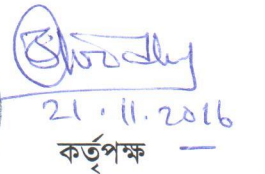 21.11.2016
কর্তৃপক্ষ